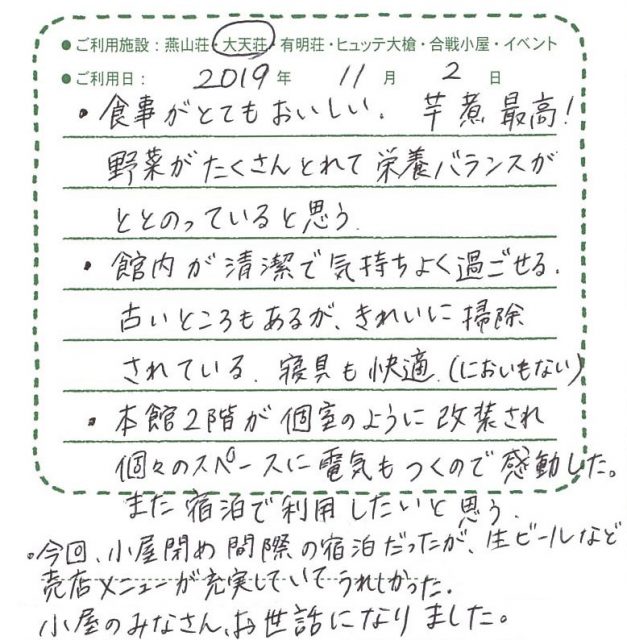 ●ご利用施設：燕山荘・大天荘・有明荘・ヒュッテ大槍・合戦小屋・イベント
●ご利用日： 2019 年 11 月 2 日
・食事がとてもおいしい。 芋煮最高！
野菜がたくさんとれて栄養バランスが
ととのっていると思う。
・館内が清潔で気持ちよく過ごせる。
古いところもあるが、きれいに掃除
されている。寝具も快適。(においもない)
・本館2階が個室のように改装され
個々のスペースに電気もつくので感動した。
また宿泊で利用したいと思う。
・今回、小屋閉め間際の宿泊だったが、生ビールなど
売店メニューが充実していてうれしかった。
小屋のみなさん、お世話になりました。